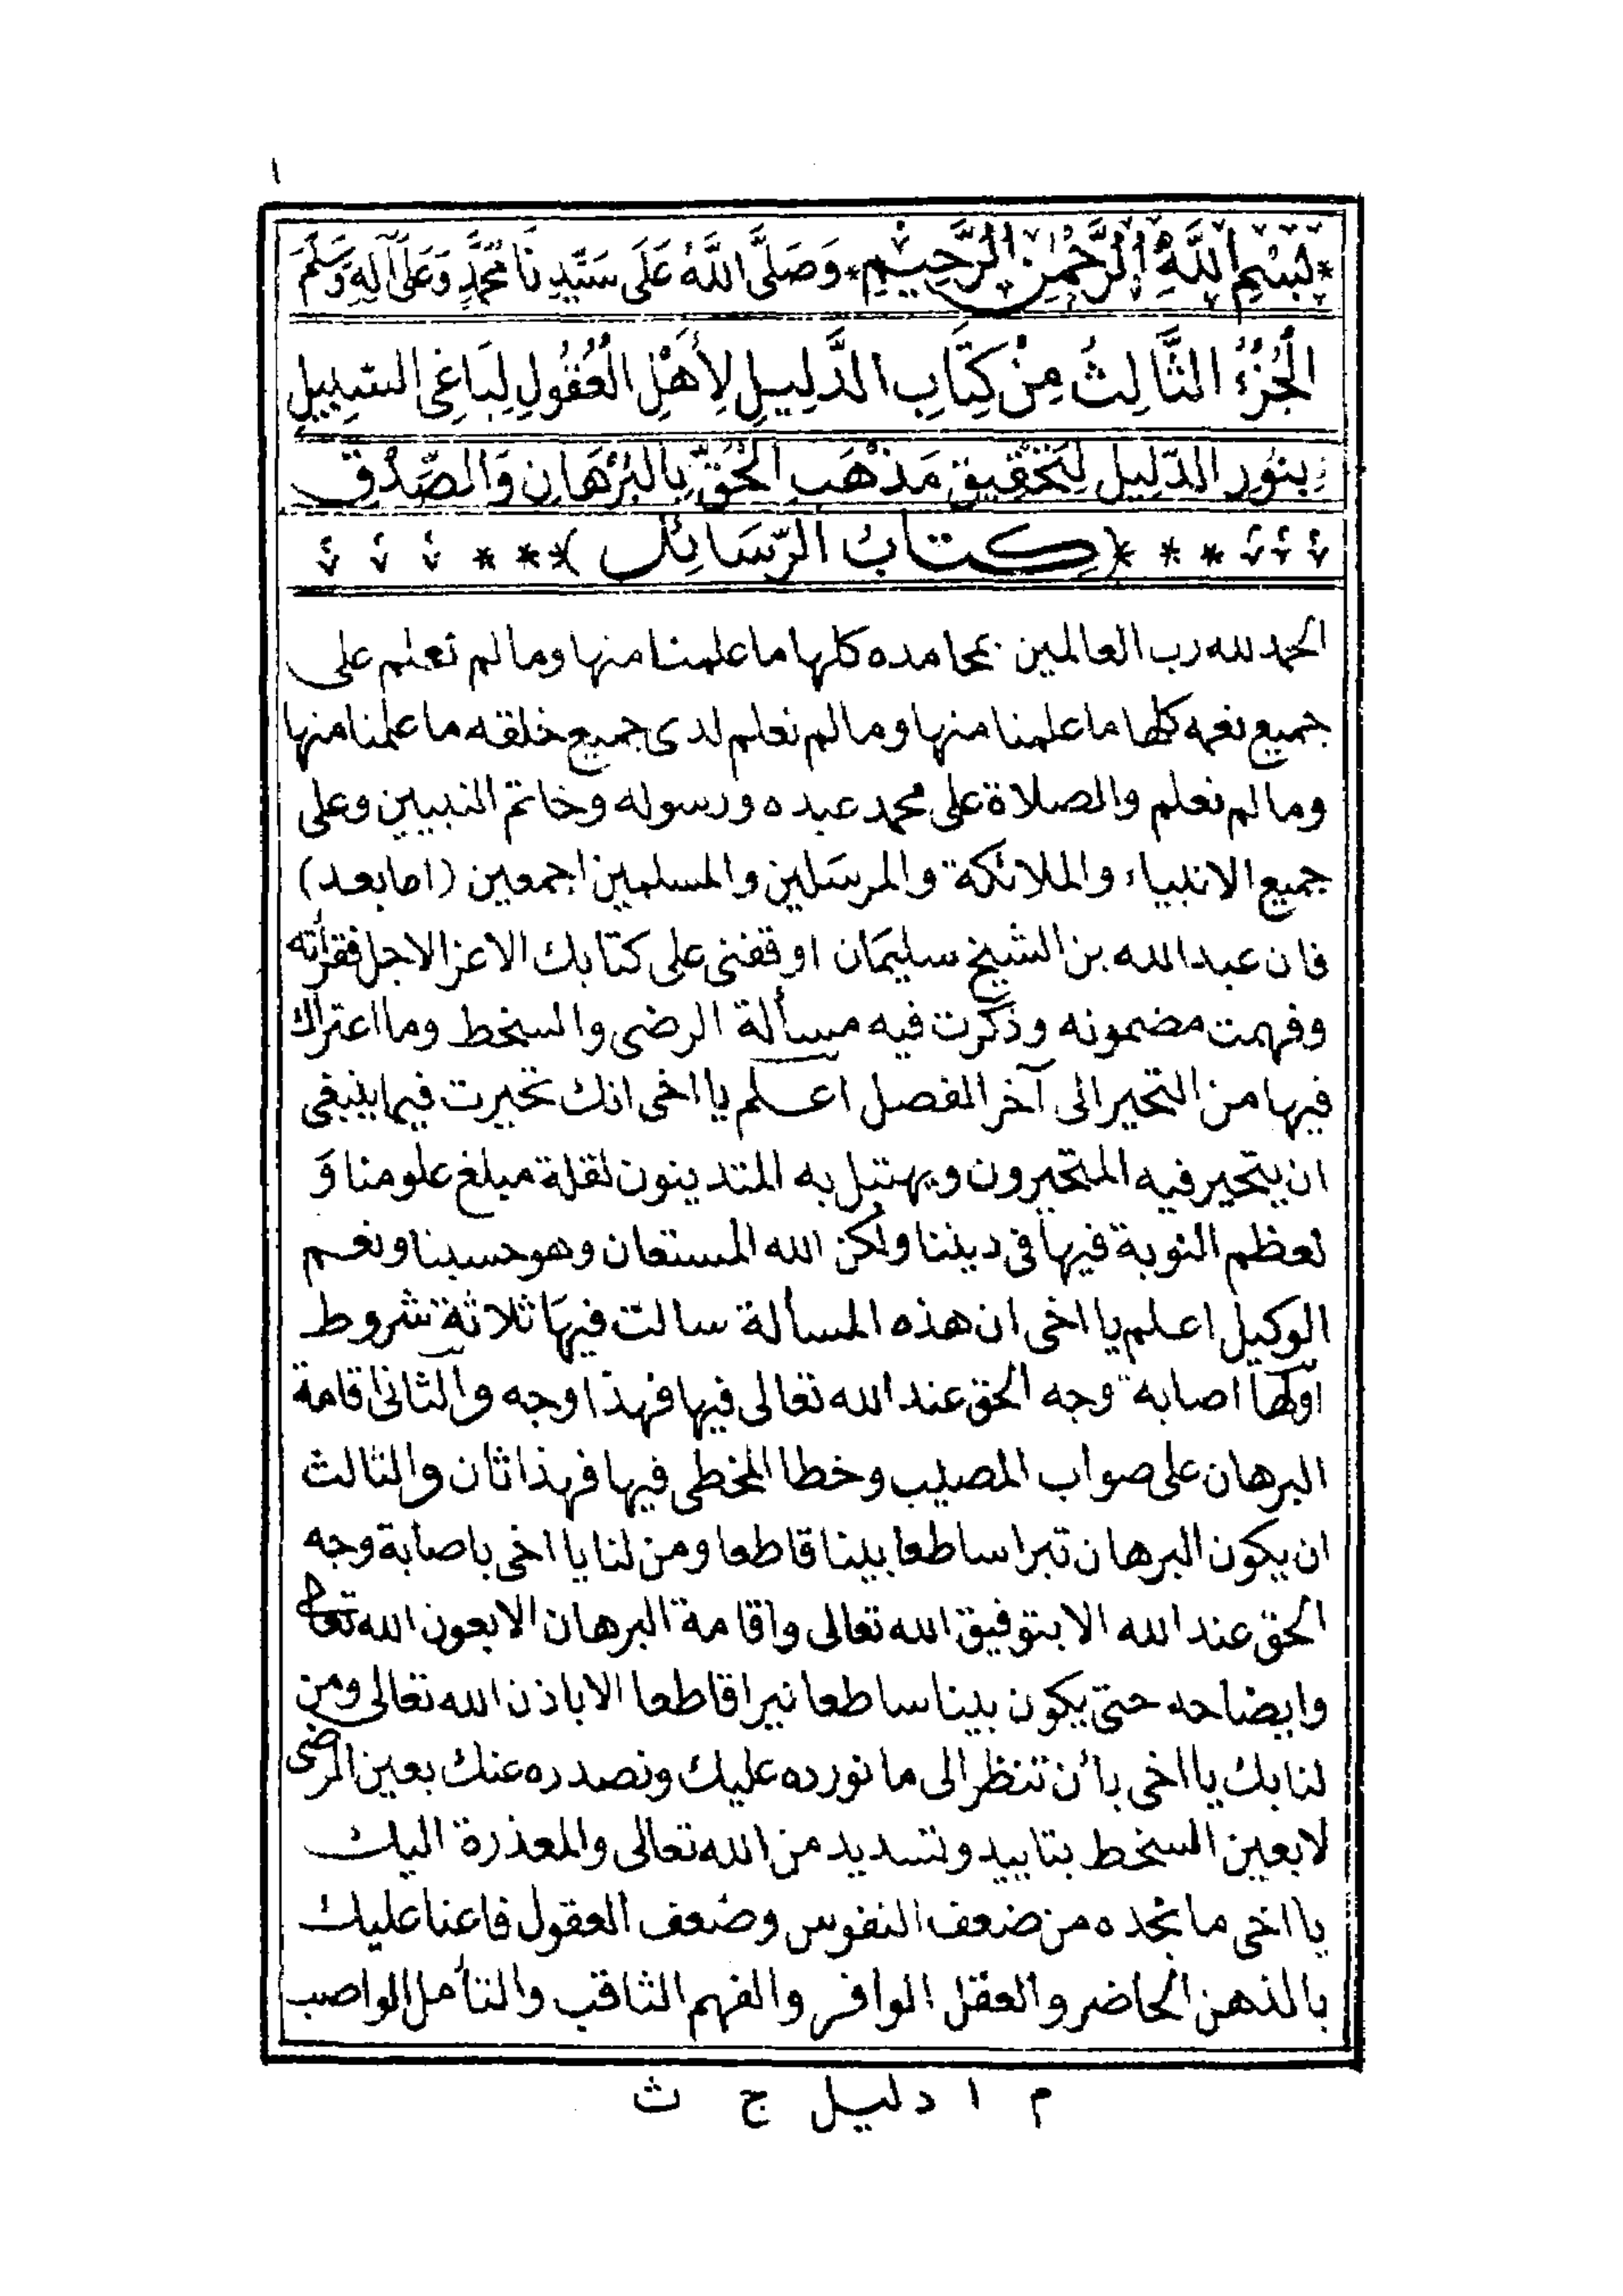 ١
*بِسْمِ اللَّهِ الرَّحْمٰنِ الرَّحِيمِ* وَصَلَّى اللَّهُ عَلَى سَيِّدِنَا مُحَمَّدٍ وَعَلَى آلِهِ وَسَلَّمَ
الْجُزْءُ الثَّالِثُ مِنْ كِتَابِ الدَّلِيلِ لِأَهْلِ الْعُقُولِ لِبَاغِى السَّبِيلِ
بِنُورِ الدَّلِيلِ لِتَحْقِيقِ مَذْهَبِ الْحَقِّ بِالْبُرْهَانِ وَالصِّدْقِ
* * *(كِتَابُ الرَّسَائِل)* * *
الحمد لله رب العالمين بمحامده كلها ما علمنا منها وما لم نعلم على
جميع نعمه كلها ما علمنا منها وما لم نعلم لدى جميع خلقه ما علمنا منها
وما لم نعلم والصلاة على محمد عبده ورسوله وخاتم النبيين وعلى
جميع الانبياء والملائكة والمرسلين والمسلمين اجمعين (اما بعد)
فان عبدالله بن الشيخ سليمان اوقفنى على كتابك الاعز الاجل فقرأته
وفهمت مضمونه وذكرت فيه مسألة الرضى والسخط وما اعتراك
فيها من التحير الى آخر الفصل اعلم يا اخى انك تحيرت فيما ينبغى
ان يتحير فيه المتحيرون ويهتبل به المتدينون لقلة مبلغ علومنا وَ
لعظم النوبة فيها فى ديننا ولكن الله المستعان وهو حسبنا ونعم
الوكيل اعلم يا اخى ان هذه المسألة سالت فيها ثلاثة شروط
اولها اصابة وجه الحق عند الله تعالى فيها فهذا وجه والثانى اقامة
البرهان على صواب المصيب وخطا المخطى فيها فهذا ثان والثالث
ان يكون البرهان نيرا ساطعا بينا قاطعا ومن لنا يا اخى باصابة وجه
الحق عند الله الا بتوفيق الله تعالى واقامة البرهان الا بعون الله تعالى
وايضاحه حتى يكون بينا ساطعا نيرا قاطعا الا باذن الله تعالى ومن
لنا بك يا اخى بأن تنظر الى ما نورده عليك ونصدره عنك بعين الرضى
لا بعين السخط بتاييد وتسديد من الله تعالى والمعذرة اليك
يا اخى ما نجده من ضعف النفوس وضعف العقول فاعنا عليك
بالذهن الحاضر والعقل الوافر والفهم الثاقب والتأمل الواصب
م ١ دليل ج ث